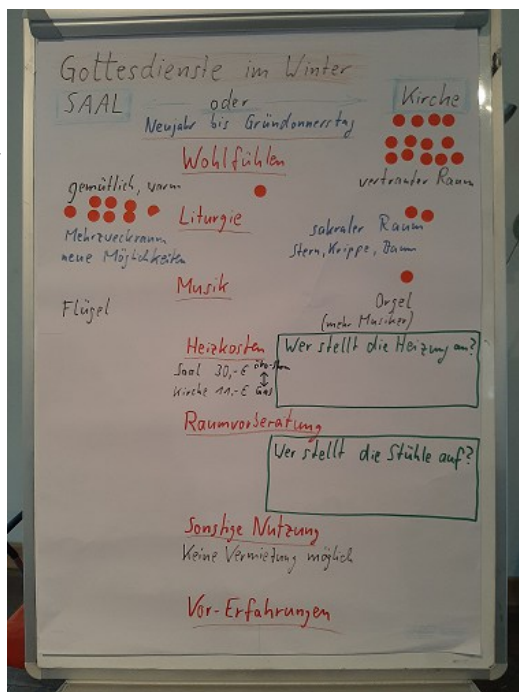 Gottesdienste im Winter
SAAL oder Kirche
Neujahr bis Gründonnerstag
Wohlfühlen
gemütlich, warm
vertrauter Raum
Liturgie
Mehrzweckraum
neue Möglichkeiten
sakraler Raum
Stern, Krippe, Baum
Musik
Flügel
Orgel
(mehr Musiker)
Heizkosten
Saal 30,-€ öko-Strom
Kirche 11,-€ Gas
Wer stellt die Heizung an?
Raumvorberatung
Wer stellt die Stühle auf?
Sonstige Nutzung
Keine Vermietung möglich
Vor-Erfahrungen